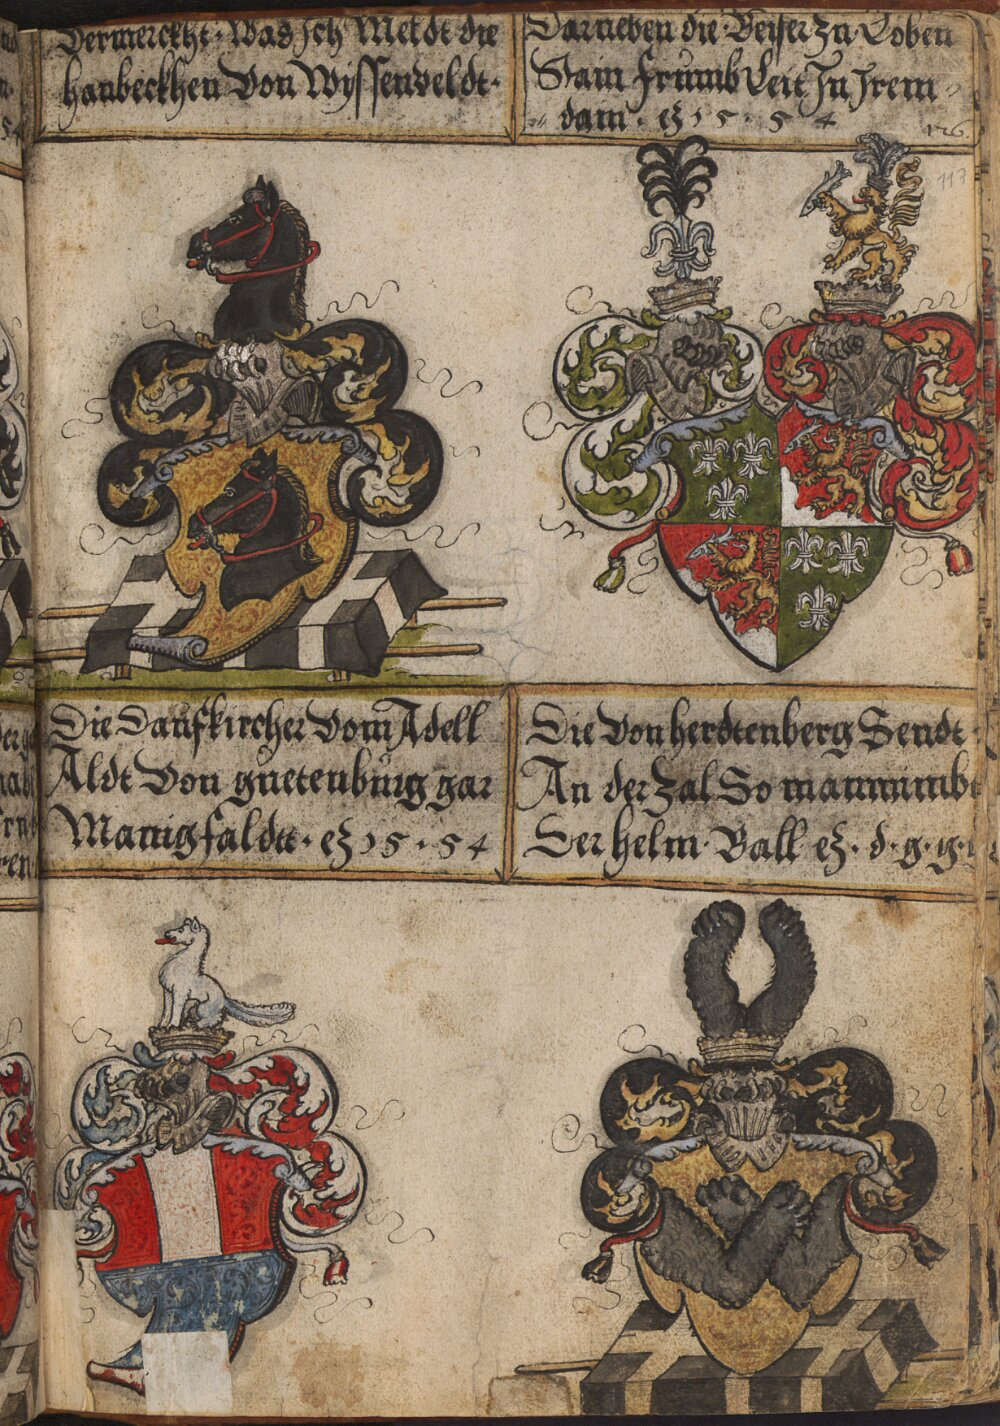 Vermerckht · Was Jch Meldt die
hanbeckhen Von Wyssenveldt ·
Darneben die Beiser zu Loben
Sain frumb Leit Jn Jrem
dam · ez 15 · 54
126.
117
Die Daufkircher Vom Adell
Aldt Von guetenburg gar
Manigfaldtt · ez 15 · 54
Die Von herdtenberg Sendt
An der Zal So
Der helm · Ball ez · d · g · g ·